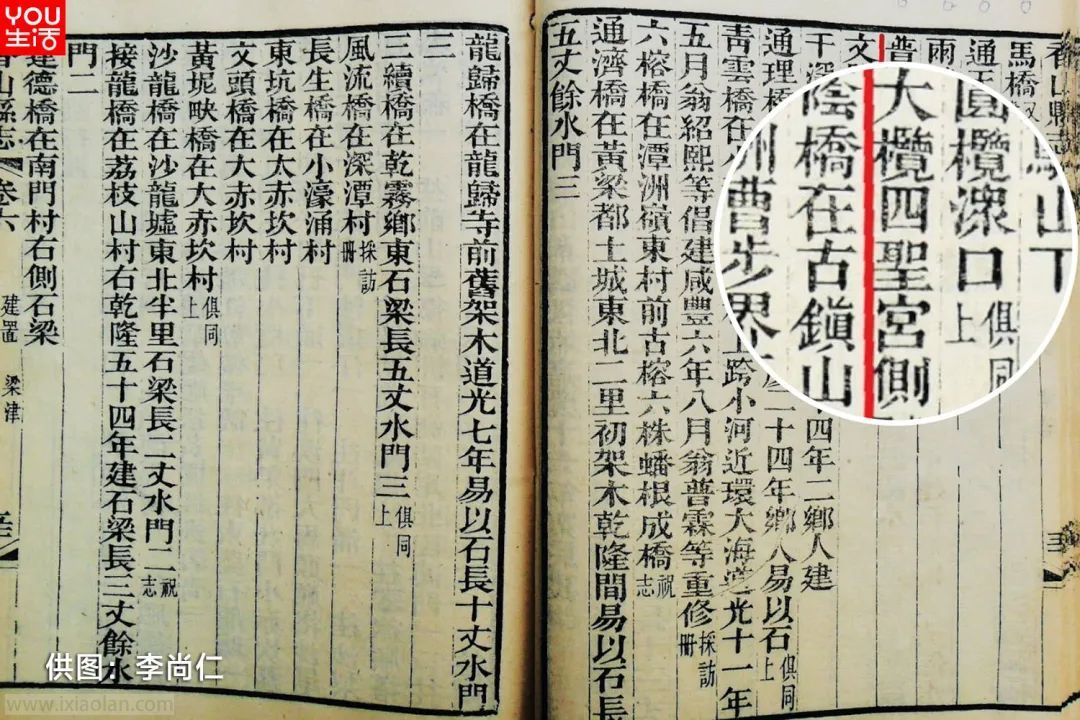 YOU生活
香山縣志
馬橋
通
雨
普
文
四年二鄉人建
通理橋
二十四年鄉人易以石俱同上
靑雲橋在
上跨小河近環大海道光十一年
五月翁紹熙等倡建咸豐六年八月翁普霖等重修採訪冊
六榕橋在潭洲嶺東村前古榕六株蟠根成橋祝志
通濟橋在黃梁都土城東北二里初架木乾隆間易以石長
五丈餘水門三
山下
圓欖滘口俱同上
大欖四聖宮側
陰橋在古鎮山
洲曹步界
龍歸橋在龍歸寺前舊架木道光七年易以石長十丈水門
三
三續橋在乾霧鄉東石梁長五丈水門三俱同上
風流橋在深潭村採訪冊
長生橋在小濠涌村
東坑橋在太赤坎村
文頭橋在大赤坎村
黃坭㘭橋在大赤坎村俱同上
沙龍橋在沙龍墟東北半里石梁長二丈水門二祝志
接龍橋在荔枝山村右乾隆五十四年建石梁長三丈餘水
門二
達德橋在南門村右側石梁
香山縣志
卷六
建置
梁津
供图：李尚仁
www.ixiaolan.com